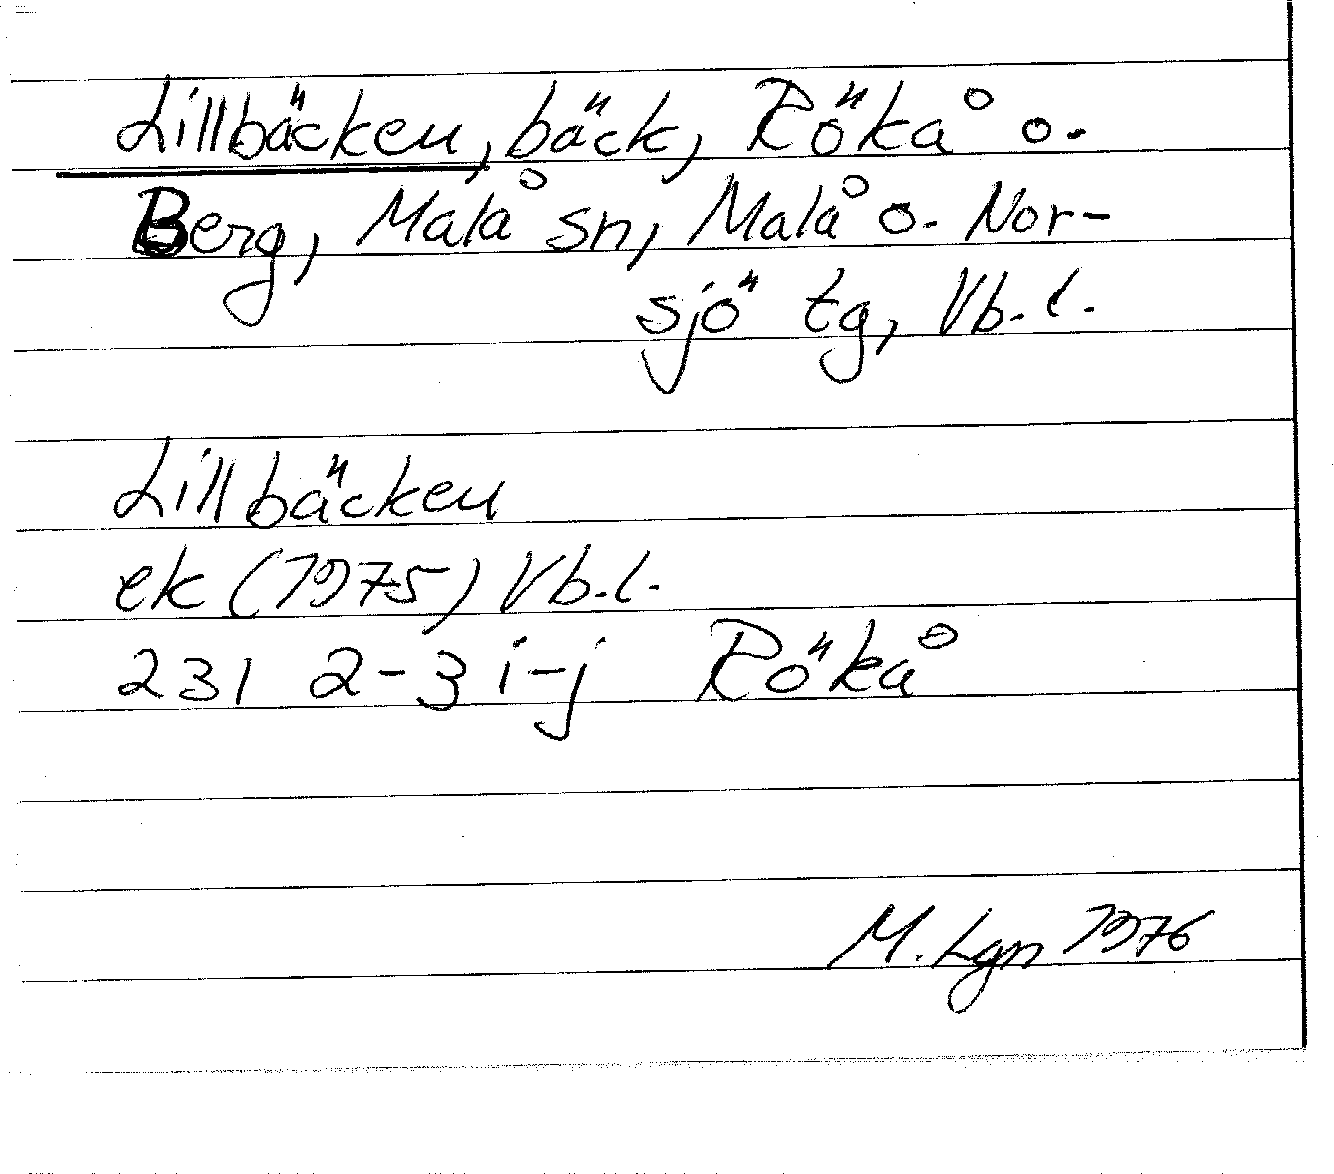 Lillbäcken, bäck, Rökå o.
Berg, Malå sn, Malå o. Nor-
sjö tg, Vb. l.
Lillbäcken
ek (1975) Vb. l.
231 2-3 i-j Rökå
M. Lgn 1976